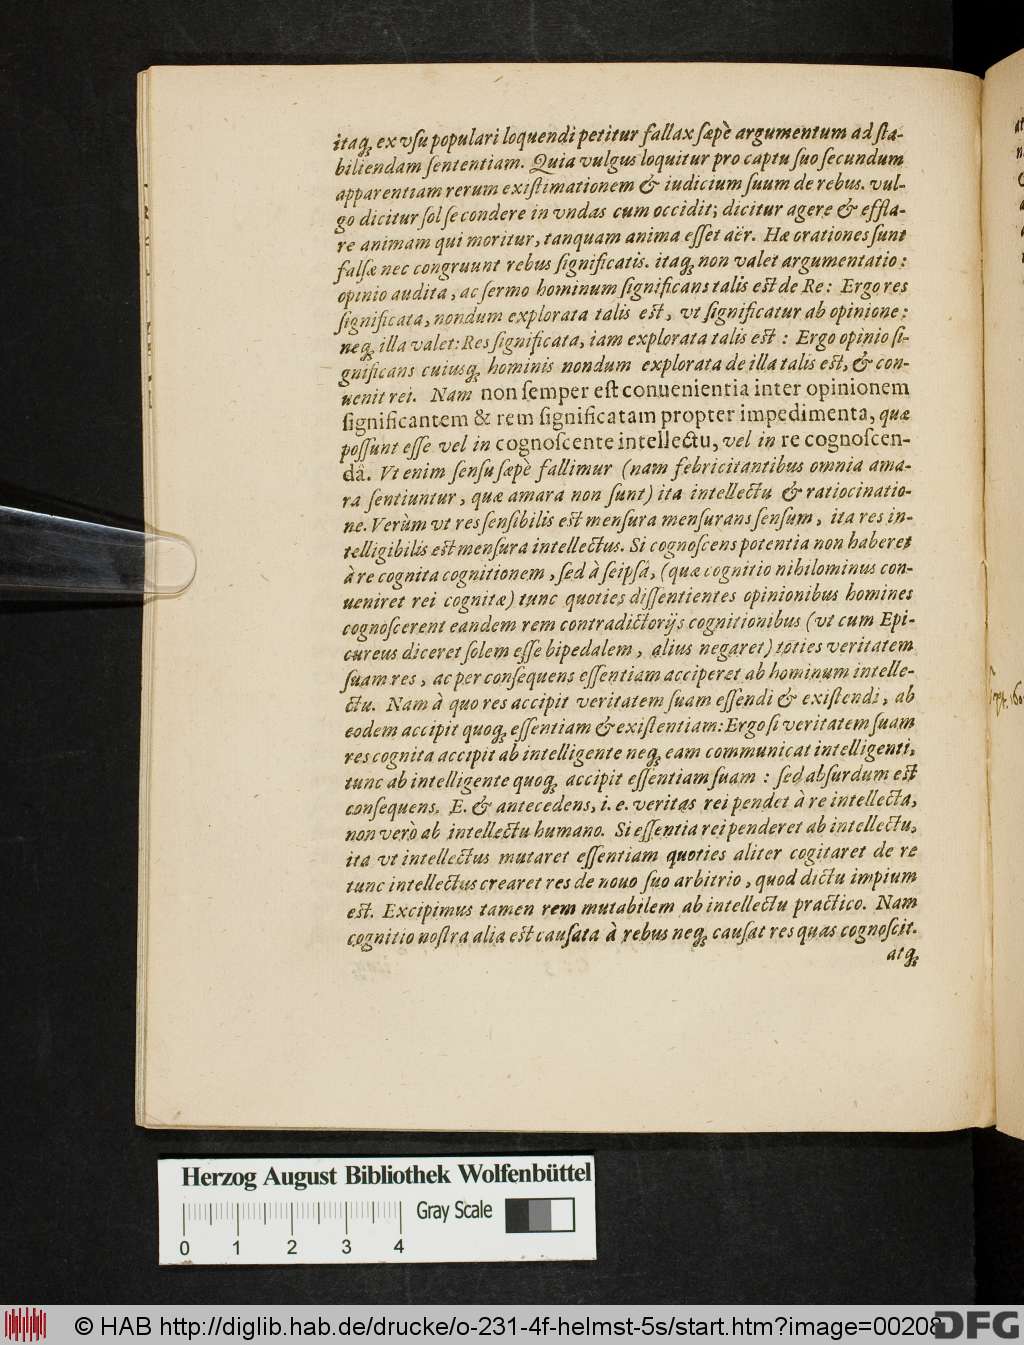 itaq; ex vſu populari loquendi petitur fallax ſæpè argumentum ad ſta-
biliendam ſententiam. Quia vulgus loquitur pro captu ſuo ſecundum
apparentiam rerum exiſtimationem & iudicium ſuum de rebus. vul-
go dicitur ſol ſe condere in vndas cum occidit; dicitur agere & effla-
re animam qui moritur, tanquam anima eſſet aër. Hæ orationes ſunt
falſæ nec congruunt rebus ſignificatis. itaq; non valet argumentatio:
opinio audita, ac ſermo hominum ſignificans talis eſt de Re: Ergo res
ſignificata, nondum explorata talis eſt, vt ſignificatur ab opinione:
neq; illa valet: Res ſignificata, iam explorata talis eſt: Ergo opinio ſi-
gnificans cuiusq; hominis nondum explorata de illa talis eſt, & con-
uenit rei. Nam non ſemper eſt conuenientia inter opinionem
ſignificantem & rem ſignificatam propter impedimenta, quæ
poſſunt eſſe vel in cognoſcente intellectu, vel in re cognoſcen-
dâ. Vt enim ſenſu ſæpè fallimur (nam febricitantibus omnia ama-
ra ſentiuntur, quæ amara non ſunt) ita intellectu & ratiocinatio-
ne. Verùm vt res ſenſibilis eſt menſura menſurans ſenſum, ita res in-
telligibilis eſt menſura intellectus. Si cognoſcens potentia non haberet
à re cognita cognitionem, ſed à ſeipſâ, (quæ cognitio nihilominus con-
ueniret rei cognitæ) tunc quoties diſſentientes opinionibus homines
cognoſcerent eandem rem contradictorijs cognitionibus (vt cum Epi-
cureus diceret ſolem eſſe bipedalem, alius negaret) toties veritatem
ſuam res, ac per conſequens eſſentiam acciperet ab hominum intelle-
ctu. Nam à quo res accipit veritatem ſuam eſſendi & exiſtendi, ab
eodem accipit quoq; eſſentiam & exiſtentiam: Ergo ſi veritatem ſuam
res cognita accipit ab intelligente neq; eam communicat intelligenti,
tunc ab intelligente quoq; accipit eſſentiam ſuam: ſed abſurdum eſt
conſequens. E. & antecedens, i. e. veritas rei pendet à re intellecta,
non verò ab intellectu humano. Si eſſentia rei penderet ab intellectu,
ita vt intellectus mutaret eſſentiam quoties aliter cogitaret de re
tunc intellectus crearet res de nouo ſuo arbitrio, quod dictu impium
eſt. Excipimus tamen rem mutabilem ab intellectu practico. Nam
cognitio noſtra alia eſt cauſata à rebus neq; cauſat res quas cognoſcit.
atq;
Herzog August Bibliothek Wolfenbüttel
Gray Scale
0 1 2 3 4
© HAB http://diglib.hab.de/drucke/o-231-4f-helmst-5s/start.htm?image=00208
DFG